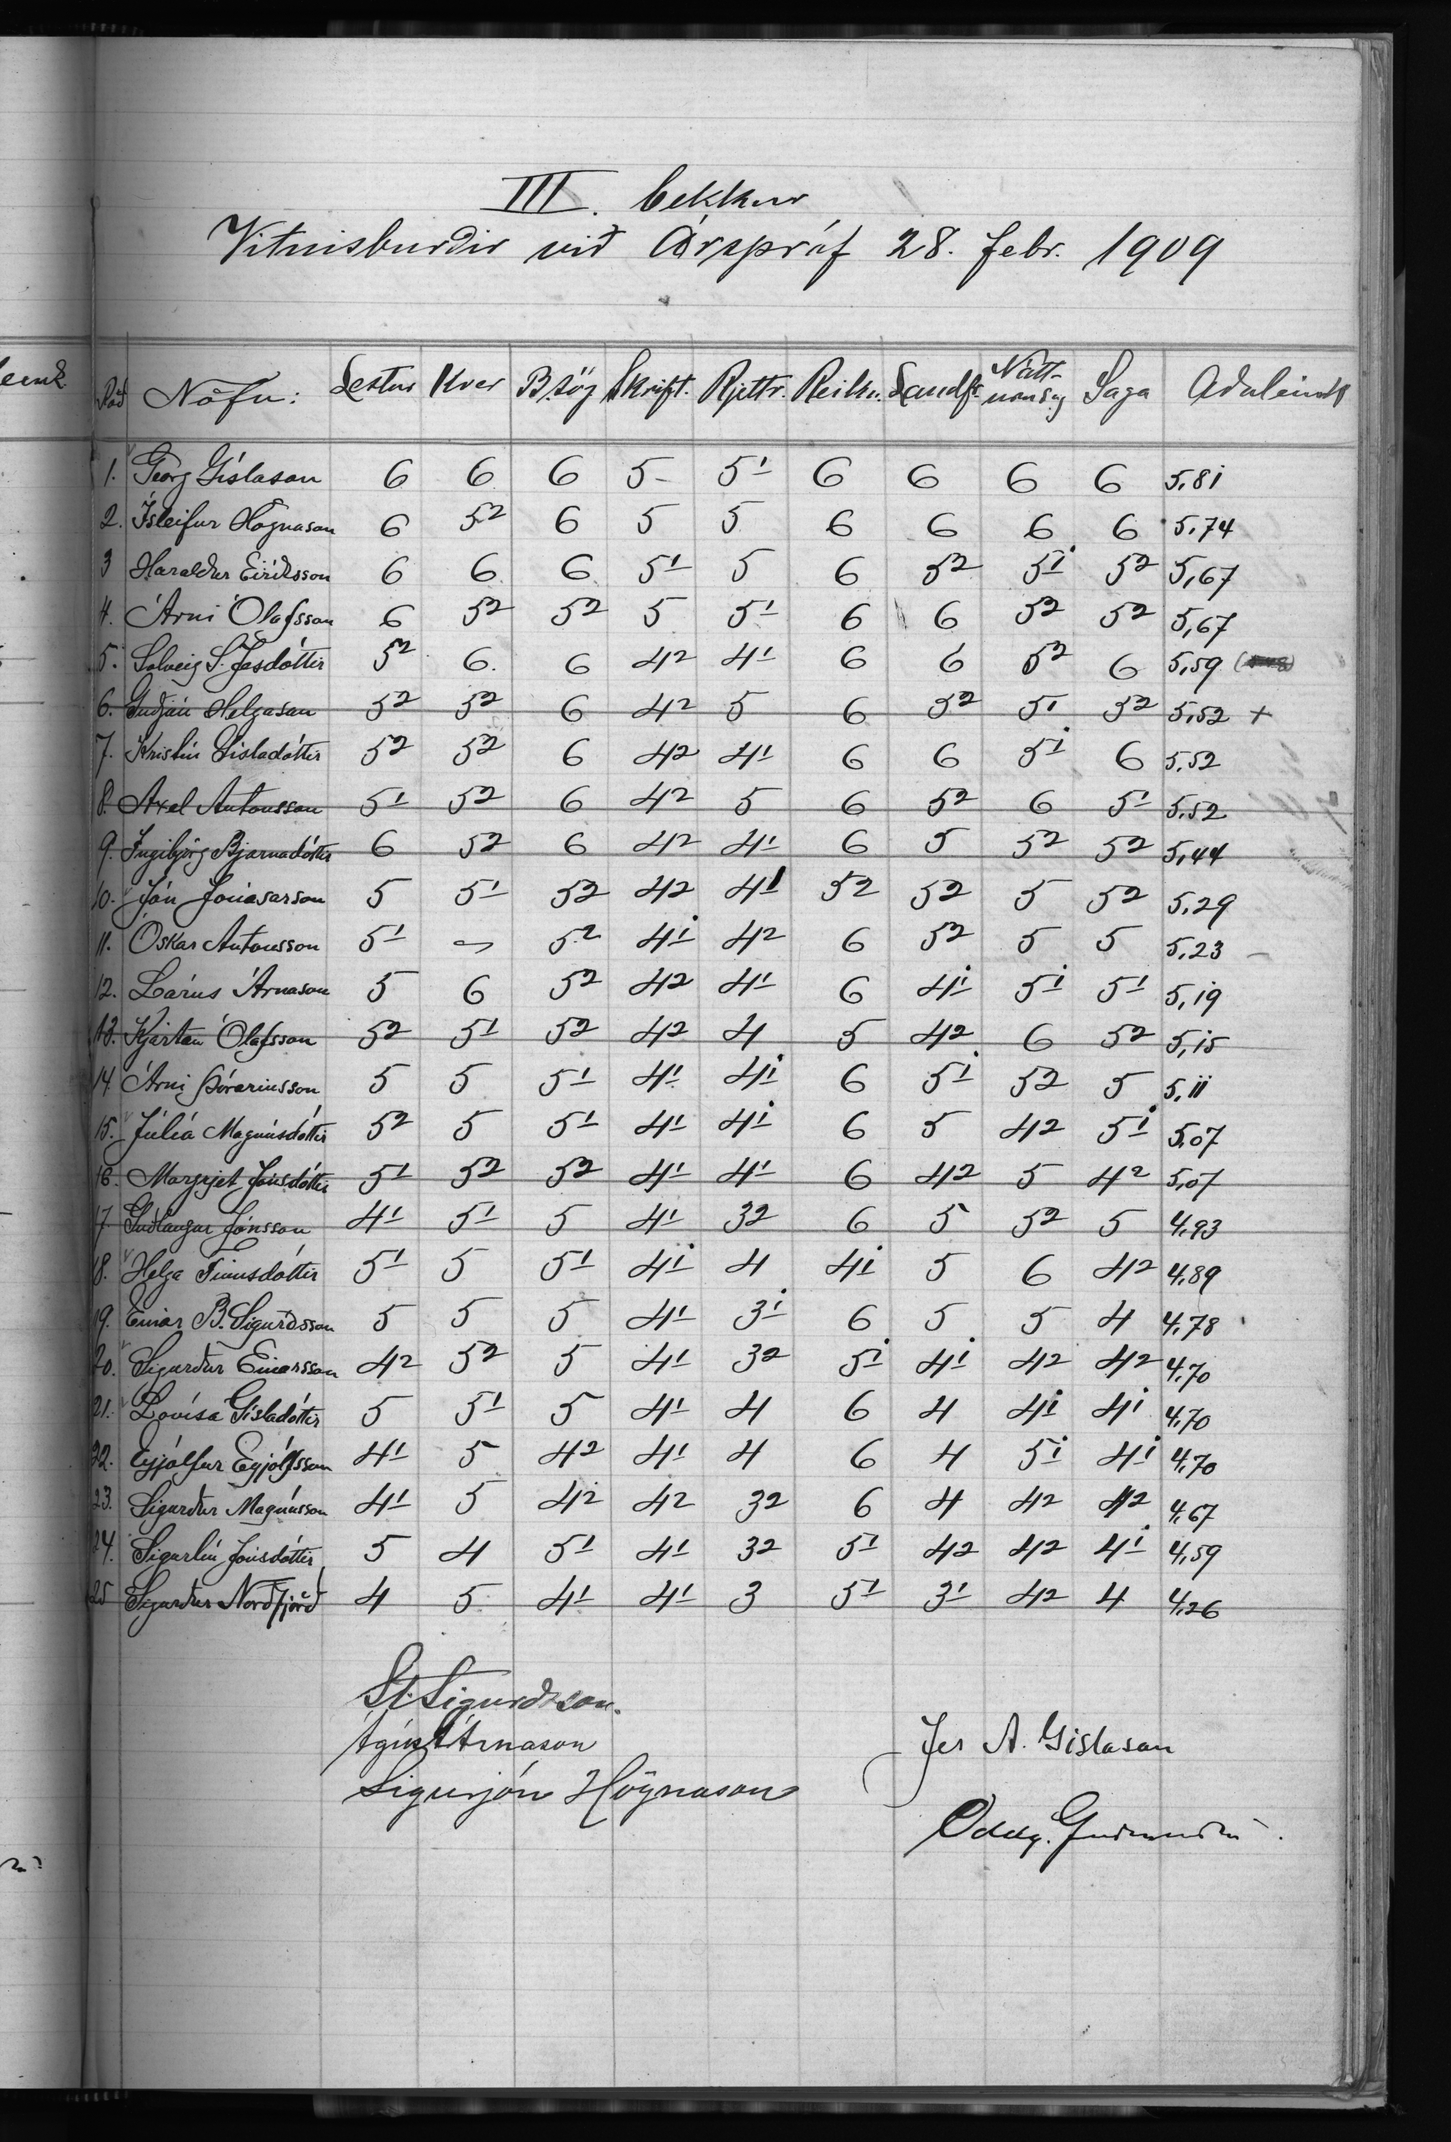 III. bekkur
Vitnisburðir við Árspróf 28. febr. 1909
Röð Nöfn: Lestur Kver B.sög Skrift. Rjettr. Reikn. Landfr. Nátt-urusag Saga Aðaleink
1. Georg Gíslason 6 6 6 5 5 1 6 6 6 6 5,81
2. Ísleifur Högnason 6 5 2 6 5 5 6 6 6 6 5,74
3 Haraldur Eiríksson 6 6 6 5 1 5 6 5 2 5 1 5 2 5,67
4. Árni Ólafsson 6 5 2 5 2 5 5 1 6 6 5 2 5 2 5,67
5. Solveig S. Jesdóttir 5 2 6 6 4 2 4 1 6 6 5 2 6 5,59
6. Guðjón Helgason 5 2 5 2 6 4 2 5 6 5 2 5 1 5 2 5,52 +
7. Kristín Gísladóttir 5 2 5 2 6 4 2 4 1 6 6 5 1 6 5,52
8. Axel Antonsson 5 1 5 2 6 4 2 5 6 5 2 6 5 1 5,52
9. Ingibjörg Bjarnadóttir 6 5 2 6 4 2 4 1 6 5 5 2 5 2 5,44
10. Jón Jónasarson 5 5 1 5 2 4 2 4 1 5 2 5 2 5 5 2 5,29
11. Óskar Antonsson 5 1 5 2 4 1 4 2 6 5 2 5 5 5,23 –
12. Lárus Árnason 5 6 5 2 4 2 4 1 6 4 1 5 1 5 1 5,19
13. Kjartan Ólafsson 5 2 5 1 5 2 4 2 4 5 4 2 6 5 2 5,15
14. Árni Þórarinsson 5 5 5 1 4 1 4 1 6 5 1 5 2 5 5,11
15. Júlía Magnúsdóttir 5 2 5 5 1 4 1 4 1 6 5 4 2 5 1 5,07
16. Margrjet Jónsdóttir 5 1 5 2 5 2 4 1 4 1 6 4 2 5 4 2 5,07
17 Guðlaugur Jónsson 4 1 5 1 5 4 1 3 2 6 5 5 2 5 4,93
18. Helga Finnsdóttir 5 1 5 5 1 4 1 4 4 1 5 6 4 2 4,89
19. Einar B. Sigurðsson 5 5 5 4 1 3 1 6 5 5 4 4,78
20. Sigurður Einarsson 4 2 5 2 5 4 1 3 2 5 1 4 1 4 2 4 2 4,70
21. Lovísa Gísladóttir 5 5 1 5 4 1 4 6 4 4 1 4 1 4,70
22. Eyjólfur Eyjólfsson 4 1 5 4 2 4 1 4 6 4 5 1 4 1 4,70
23. Sigurður Magnússon 4 1 5 4 2 4 2 3 2 6 4 4 2 4 2 4,67
24. Sigurlín Jónsdóttir 5 4 5 1 4 1 3 2 5 1 4 2 4 2 4 1 4,59
25 Sigurður Norðfjörð 4 5 4 1 4 1 3 5 1 3 1 4 2 4 4,26
St. Sigurðsson.
Ágúst Árnason
Jes A. Gíslason
Sigurjón Högnason
Oddg. Guðmundss